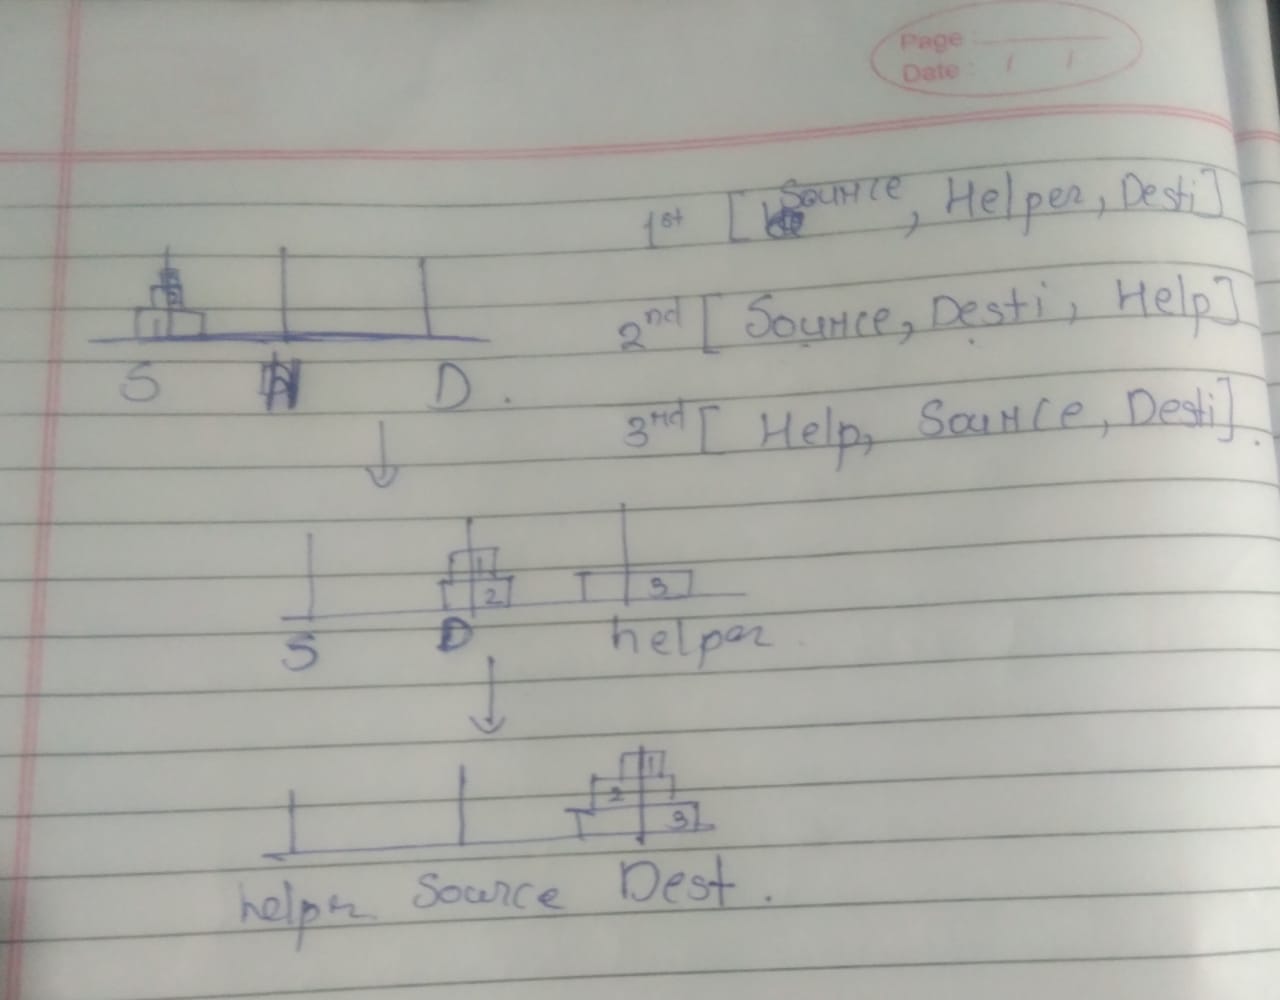 Page
Date : / /
1st [ Source, Helper, Desti]
2nd [ Source, Desti, Help]
3rd [ Help, Source, Desti].
S H D.
1
2
3
S D helper
1
2
3
helper Source Dest.